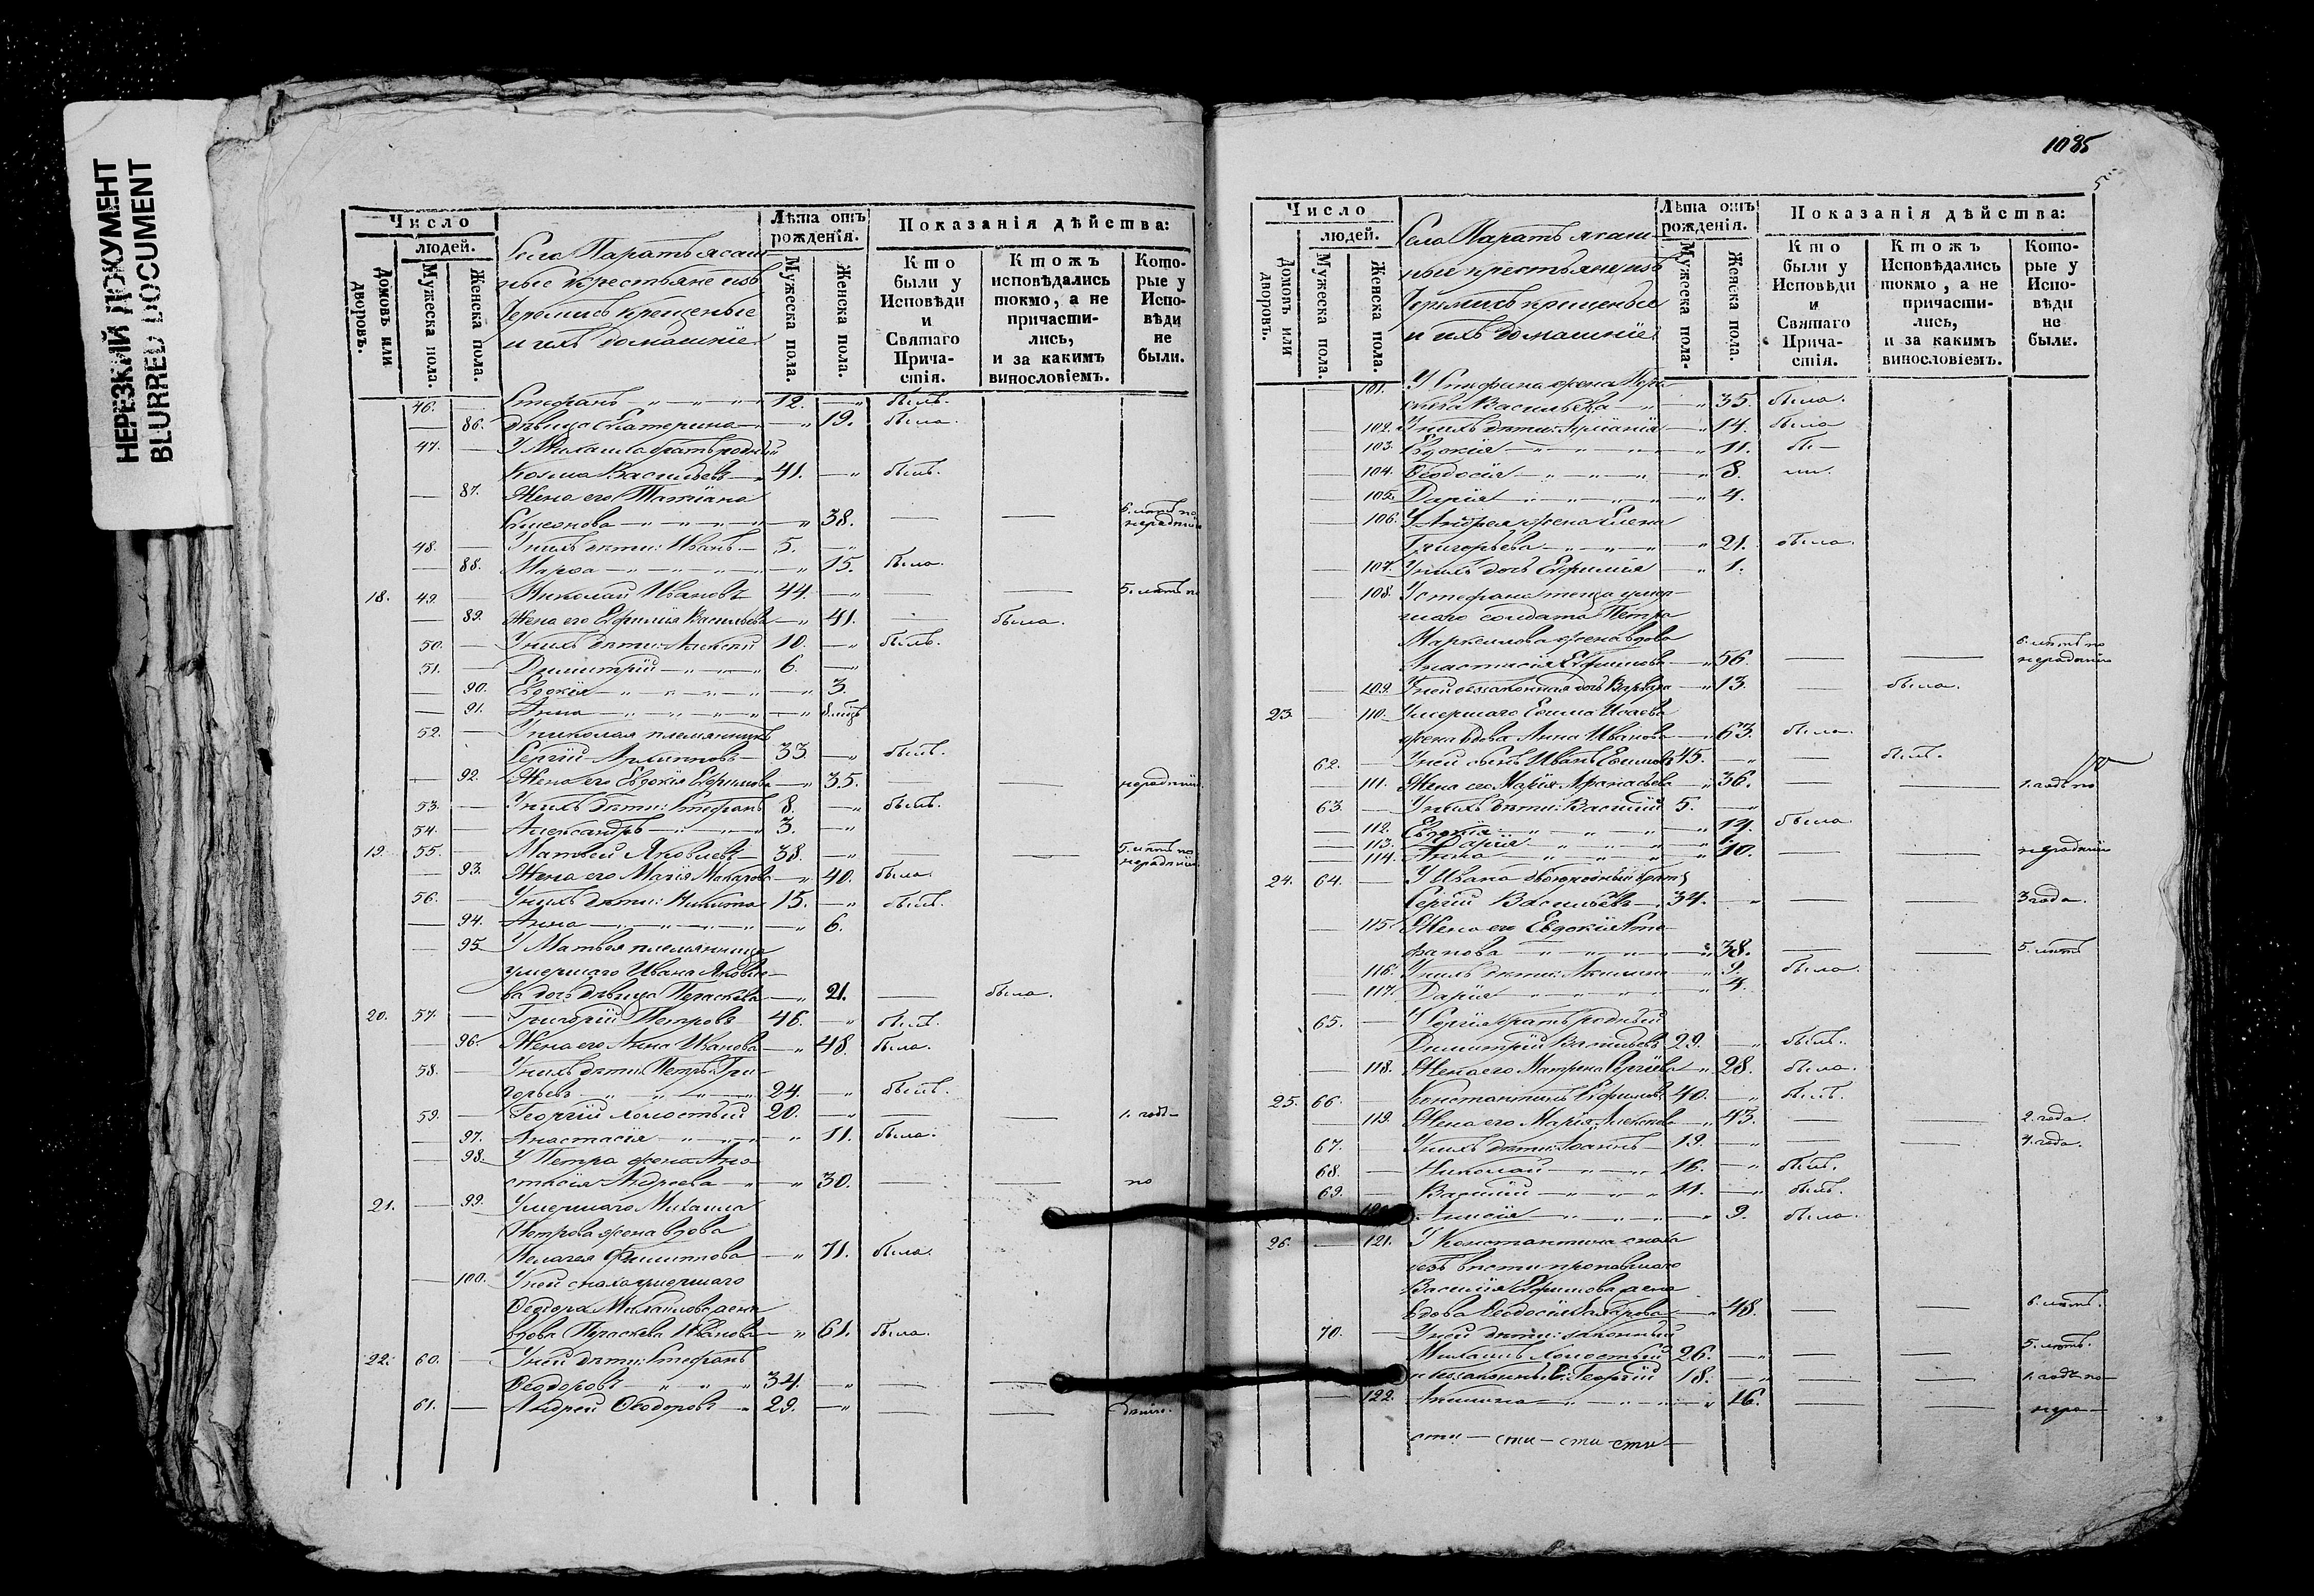 НЕРЕЗКИЙ ДОКУМЕНТ
BLURRED DOCUMENT
Число
людей.
Домовъ или дворовъ.
Мужеска пола.
Женска пола.
Село Паратъ ясаш-
ные крестьяне изъ
Черемисъ крещеные
и ихъ домашніе
Лѣта отъ рожденія.
Мужеска пола.
Женска пола.
Показанія дѣйства:
Кто были у Исповѣди и Святаго Причастія.
Ктожъ исповѣдались токмо, а не причастились, и за какимъ винословіемъ.
Которые у Исповѣди не были.
46. Стефанъ 12. былъ.
86. дѣвица Екатерина 19. была.
47. У Михаила братъ родный
Козма Васильевъ 41. былъ.
87. Жена его Татіана
Симеонова 38. 6. лѣтъ по нерадѣнію
48. У нихъ дѣти: Иванъ 5.
88. Марѳа 15. была.
18. 49. Николай Ивановъ 44. 5. лѣтъ по
89. Жена его Ефимія Васильева 41. была.
50. У нихъ дѣти: Алексѣй 10. былъ.
51. Димитрій 6.
90. Евдокія 3.
91. Анна
52. У Николая племянникъ
Сергій 33. былъ.
92. Жена его Евдокія Ефимова 35. нерадѣнію
53. У нихъ дѣти: Стефанъ 8. былъ.
54. Александръ 3.
19. 55. Матвей Яковлевъ 38. 5. лѣтъ по нерадѣнію
93. Жена его Марія Макарова 40. была.
56. У нихъ дѣти: Никита 15. былъ.
94. Анна 6.
95. У Матвея племянница
умершаго Ивана Яковле-
ва дочь дѣвица Параскева 21. была.
20. 57. Григорій Петровъ 46. былъ.
96. Жена его Анна Иванова 48. была.
58. У нихъ дѣти: Петръ Гри-
горьевъ 24. былъ.
59. Георгій холостый 20. 1. годъ
97. Анастасія 11. была.
98. У Петра жена Ана-
стасія Андреева 30. по
21. 99. Умершаго Михаила
Петрова жена вдова
Пелагея Филиппова 71. была.
100. У ней сноха умершаго
Ѳеодора Михаилова жена
вдова Параскева Иванова 61. была.
22. 60. У ней дѣти: Стефанъ
Ѳеодоровъ 34.
61. Андрей Ѳеодоровъ 29. дѣнію.
1085
5
Число
людей.
Домовъ или дворовъ.
Мужеска пола.
Женска пола.
Село Паратъ ясаш-
ные крестьяне изъ
Черемисъ крещеные
и ихъ домашніе
Лѣта отъ рожденія.
Мужеска пола.
Женска пола.
Показанія дѣйства:
Кто были у Исповѣди и Святаго Причастія.
Ктожъ Исповѣдались токмо, а не причастились, и за какимъ винословіемъ.
Которые у Исповѣди не были.
101. У Стефана жена Пара-
скева Васильева 35. была.
102. У нихъ дѣти: 14. была
103. Евдокія 11. бы-
104. Ѳеодосія 8. ли.
105. Дарія 4.
106. У Андрея жена Елена
Григорьева 21. была.
107. У нихъ дочь Ефимія 1.
108. У Стефана теща умер-
шаго солдата Петра
Маркелова жена вдова
Анастасія Ефимова 56. 6. лѣтъ по нерадѣнію
109. У ней незаконная дочь Варвара 13. была.
23. 110. Умершаго Исаева
жена вдова Анна Иванова 63. была.
62. У ней сынъ Иванъ 45. былъ.
111. Жена его Марія Афанасьева 36. 1. годъ по
63. У нихъ дѣти: Василій 5.
112. Евдокія 14. была.
113. Дарія
114. Анна 10. нерадѣнію
24. 64. У Ивана двоюродный братъ
Сергій Васильевъ 34. 3 года.
115. Жена его Евдокія Сте-
фанова 38. 5. лѣтъ
116. У нихъ дѣти: Акилина 9. была.
117. Дарія 4.
65. У Сергія братъ родный
Димитрій Васильевъ 29. былъ.
118. Жена его Матрена Сергіева 28. была.
25. 66. Константинъ Ефимовъ 40. былъ.
119. Жена его Марія Алексѣева 43. 2. года.
67. У нихъ дѣти: Іоаннъ 19. 4. года.
68. Николай 16. былъ.
69. Василій 11. былъ.
120. Анисія 9. была.
26. 121. У Константина сноха
безъ вѣсти пропавшаго
Василія Ефимова жена
вдова Ѳеодосія 48. 6. лѣтъ.
70. У ней дѣти: законный
Михаилъ холостый 26. 5. лѣтъ.
и незаконный: Георгій 18. 1. годъ по
122. Акилина 16. нера-
сти — сти — сти сти —